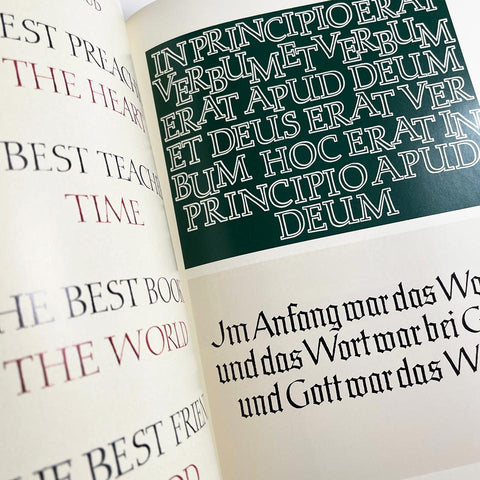 BEST
THE HEART
BEST
TIME
THE BEST BOOK
THE WORLD
THE BEST
IN PRINCIPIO ERAT
VERBUM ET VERBUM
ERAT APUD DEUM
ET DEUS ERAT VER
BUM HOC ERAT IN
PRINCIPIO APUD
DEUM
Im Anfang war das
und das Wort war bei
und Gott war das